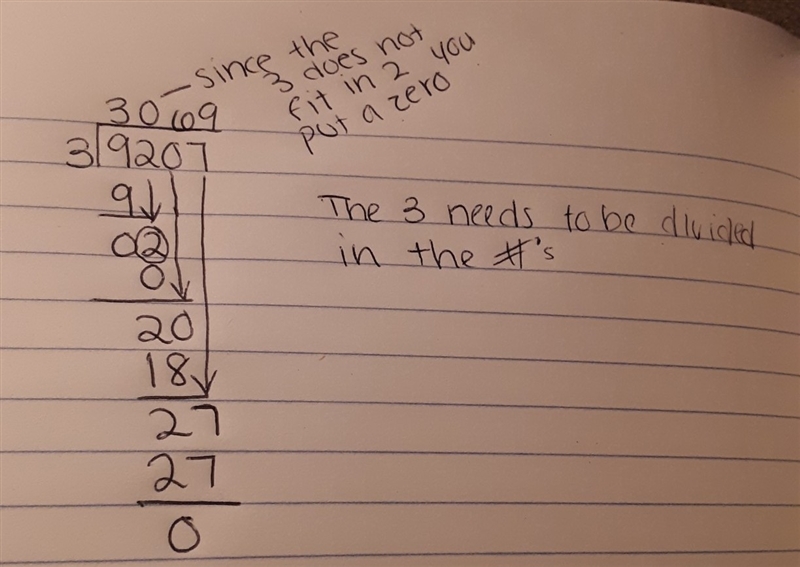 — since the
3 does not
fit in 2 you
put a zero
3069
3)9207
9
02
0
20
18
27
27
0
The 3 needs to be divided
in the #'s